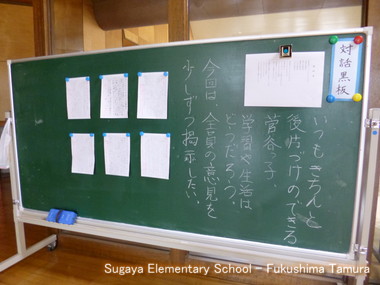 対話黒板
いつもきちんと
後片づけのできる
菅谷っ子。
学習や生活は
どうだろう。
今回は、全員の意見を
少しずつ掲示したい。
Sugaya Elementary School - Fukushima Tamura